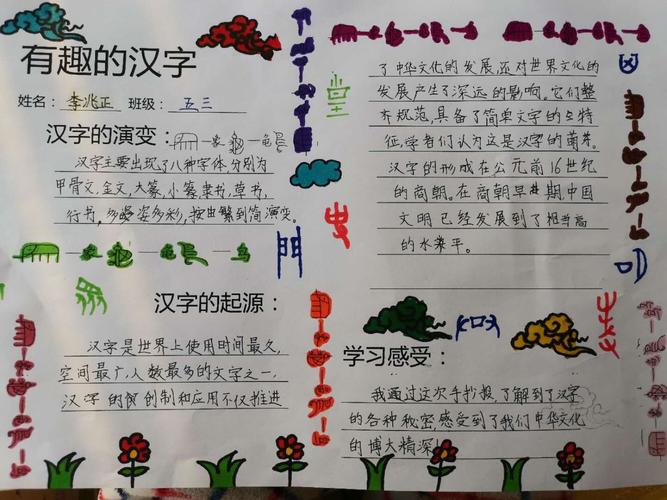 有趣的汉字
姓名：李兆正 班级：五三
汉字的演变：
汉字主要出现了八种字体，分别为
甲骨文，金文，大篆，小篆，隶书，草书，
行书，多姿多彩，按由繁到简演变。
汉字的起源：
汉字是世界上使用时间最久，
空间最广，人数最多的文字之一，
汉字的创制和应用不仅推进
了中华文化的发展，还对世界文化的
发展产生了深远的影响。它们整
齐规范，具备了简单文字的
征，学者们认为这是汉字的萌芽。
汉字的形成在公元前16世纪
的商朝。在商朝早期中国
文明已经发展到了相当高
的水平。
学习感受：
我通过这次手抄报，了解到了汉字
的各种秘密，感受到了我们中华文化
的博大精深！